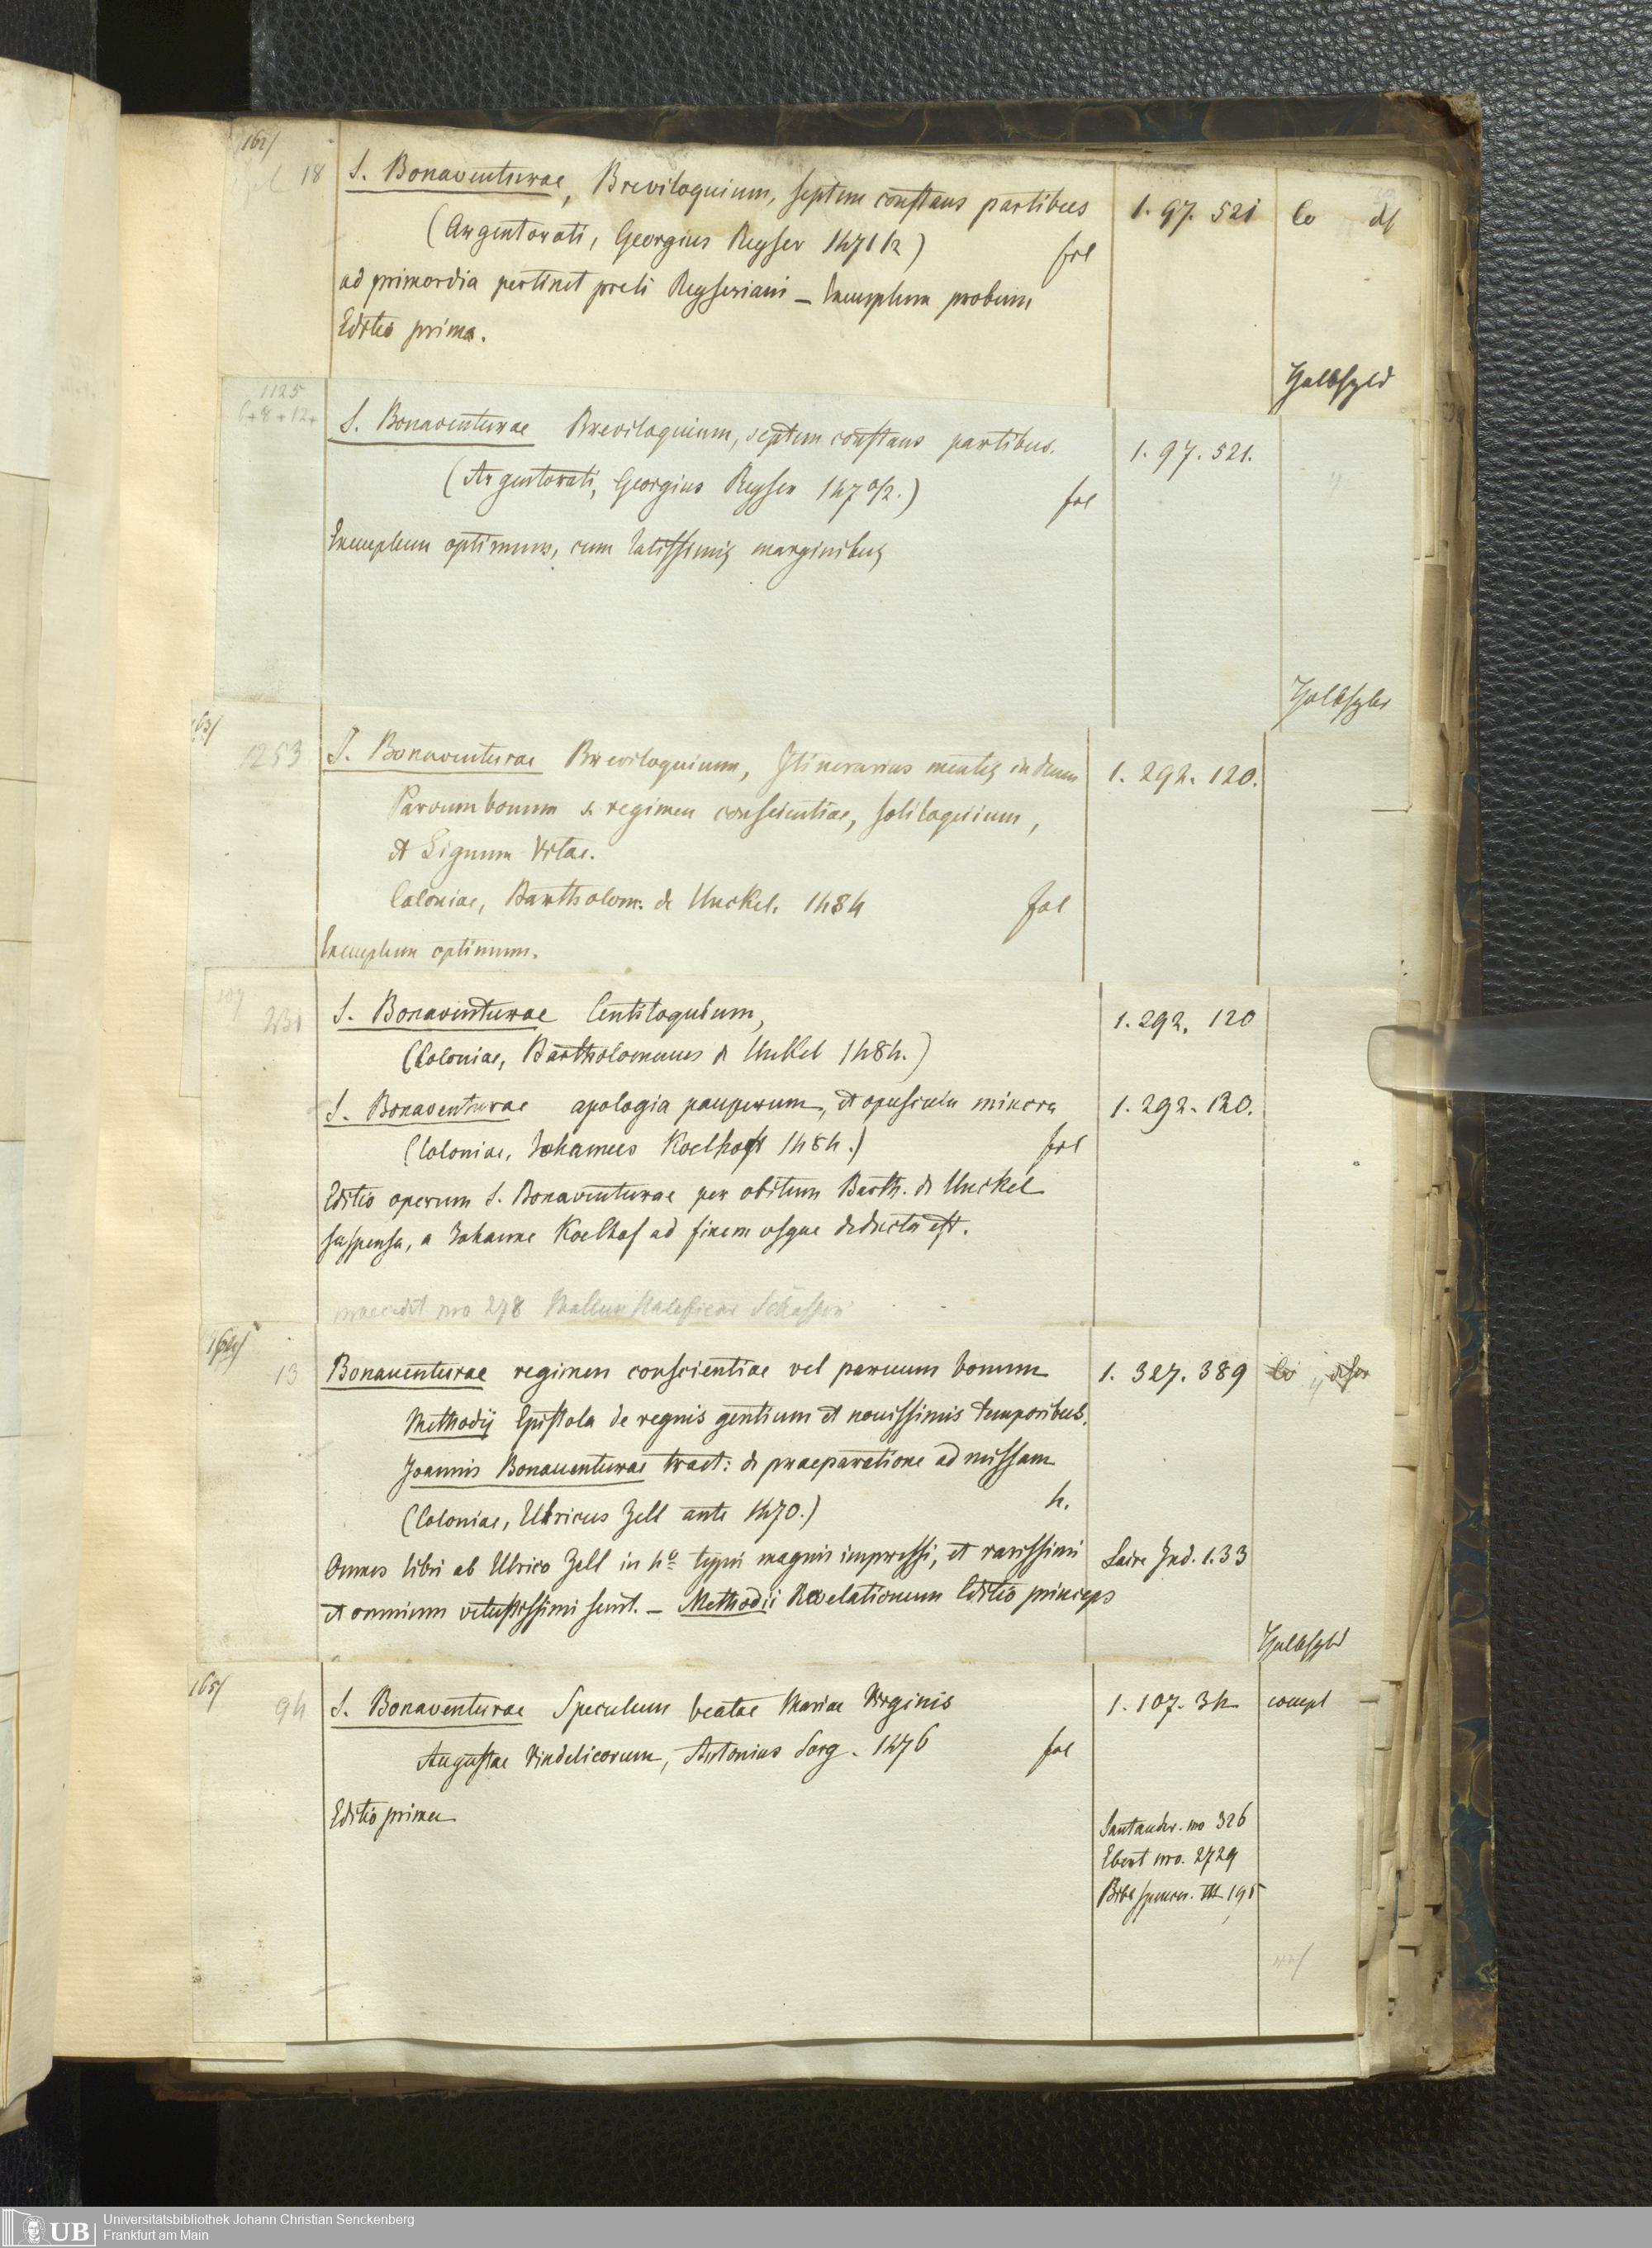 162/
18 S. Bonaventurae, Breviloquium, septem constans partibus 1. 97. 521 Co
(Argentorati, Georgius Reyser 1471/2) fol
ad primordia pertinet preli Reyseriani – Exemplum probum
Editio prima.
Halbfzbd
1125
6+8+12+
S. Bonaventurae Breviloquium, septem constans partibus. 1. 97. 521.
(Argentorati, Georgius Reyser 1470/2.) fol
Exemplum optimum, cum latissimis marginibus
Halbfzbd
163/
1253 S. Bonaventurae Breviloquium, Itinerarius mentis in deum 1. 292. 120.
Parvum bonum s. regimen conscientiae, soliloquium,
et Lignum Vitae.
Coloniae, Bartholom. de Unckel. 1484 fol
Exemplum optimum.
231 S. Bonaventurae Centiloquium, 1. 292. 120
(Coloniae, Bartholomaeus de Unckel 1484.)
S. Bonaventurae apologia pauperum, et opuscula minora 1. 292. 120.
(Coloniae, Johannes Koelhoff 1484.) fol
Editio operum S. Bonaventurae per obitum Barth. de Unckel
suspensa, a Johanne Koelhof ad finem usque deducta est.
praecedit nro 278
164/
13 Bonauenturae regimen conscientiae vel paruum bonum 1. 327. 389
Methodij Epistola de regnis gentium et nouissimis temporibus.
Joannis Bonauenturae tract: de praeparatione ad missam
(Coloniae, Ulricus Zell ante 1470.) 4.
Omnes libri ab Ulrico Zell in 4º typis magnis impressi, et rarissimi Laire Ind. 1.33
et omnium vetustissimi sunt. – Methodii Revelationum Editio princeps
Halbfzbd
165/
94 S. Bonaventurae Speculum beatae Mariae Virginis 1. 107. 34 compl
Augustae Vindelicorum, Antonius Sorg. 1476 fol
Editio prima
Santander. no 326
Ebert nro. 2729
Bibl spencer. III 195
UB Universitätsbibliothek Johann Christian Senckenberg
Frankfurt am Main